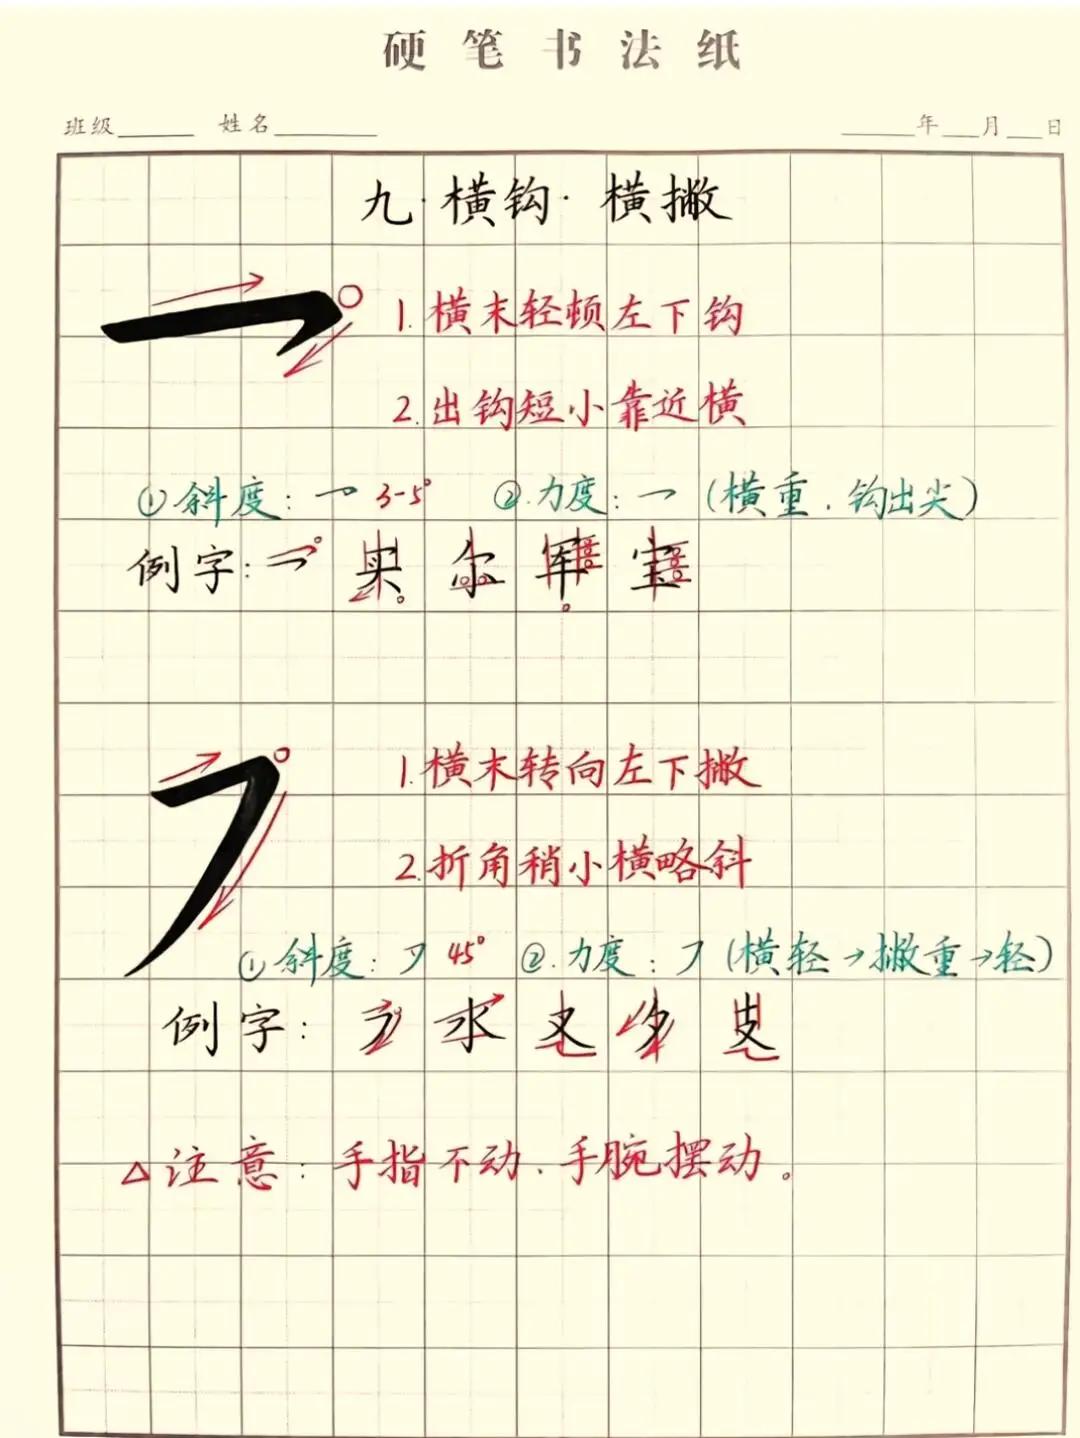 硬笔书法纸
班级______ 姓名______ ______年___月___日
九·横钩·横撇
1.横末轻顿左下钩
2.出钩短小靠近横
①斜度:㇖ 3-5° ②.力度:㇖ (横重.钩出尖)
例字:㇖ 买 尔 军 宝
1.横末转向左下撇
2.折角稍小横略斜
①斜度:㇇ 45° ②.力度:㇇ (横轻→撇重→轻)
例字:㇇ 水 又 夕 支
△注意:手指不动.手腕摆动。